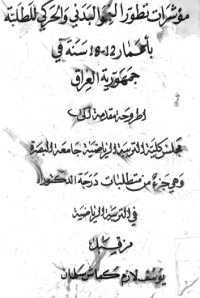 مؤشرات تطور النمو البدني والحركي للطلبة
بأعمار 12-18 سنة في
جمهورية العراق
اطروحة مقدمة الى
مجلس كلية التربية الرياضية جامعة البصرة
وهي جزء من متطلبات درجة الدكتوراه
في التربية الرياضية
من قبل
يوسف لازم كماش سلمان